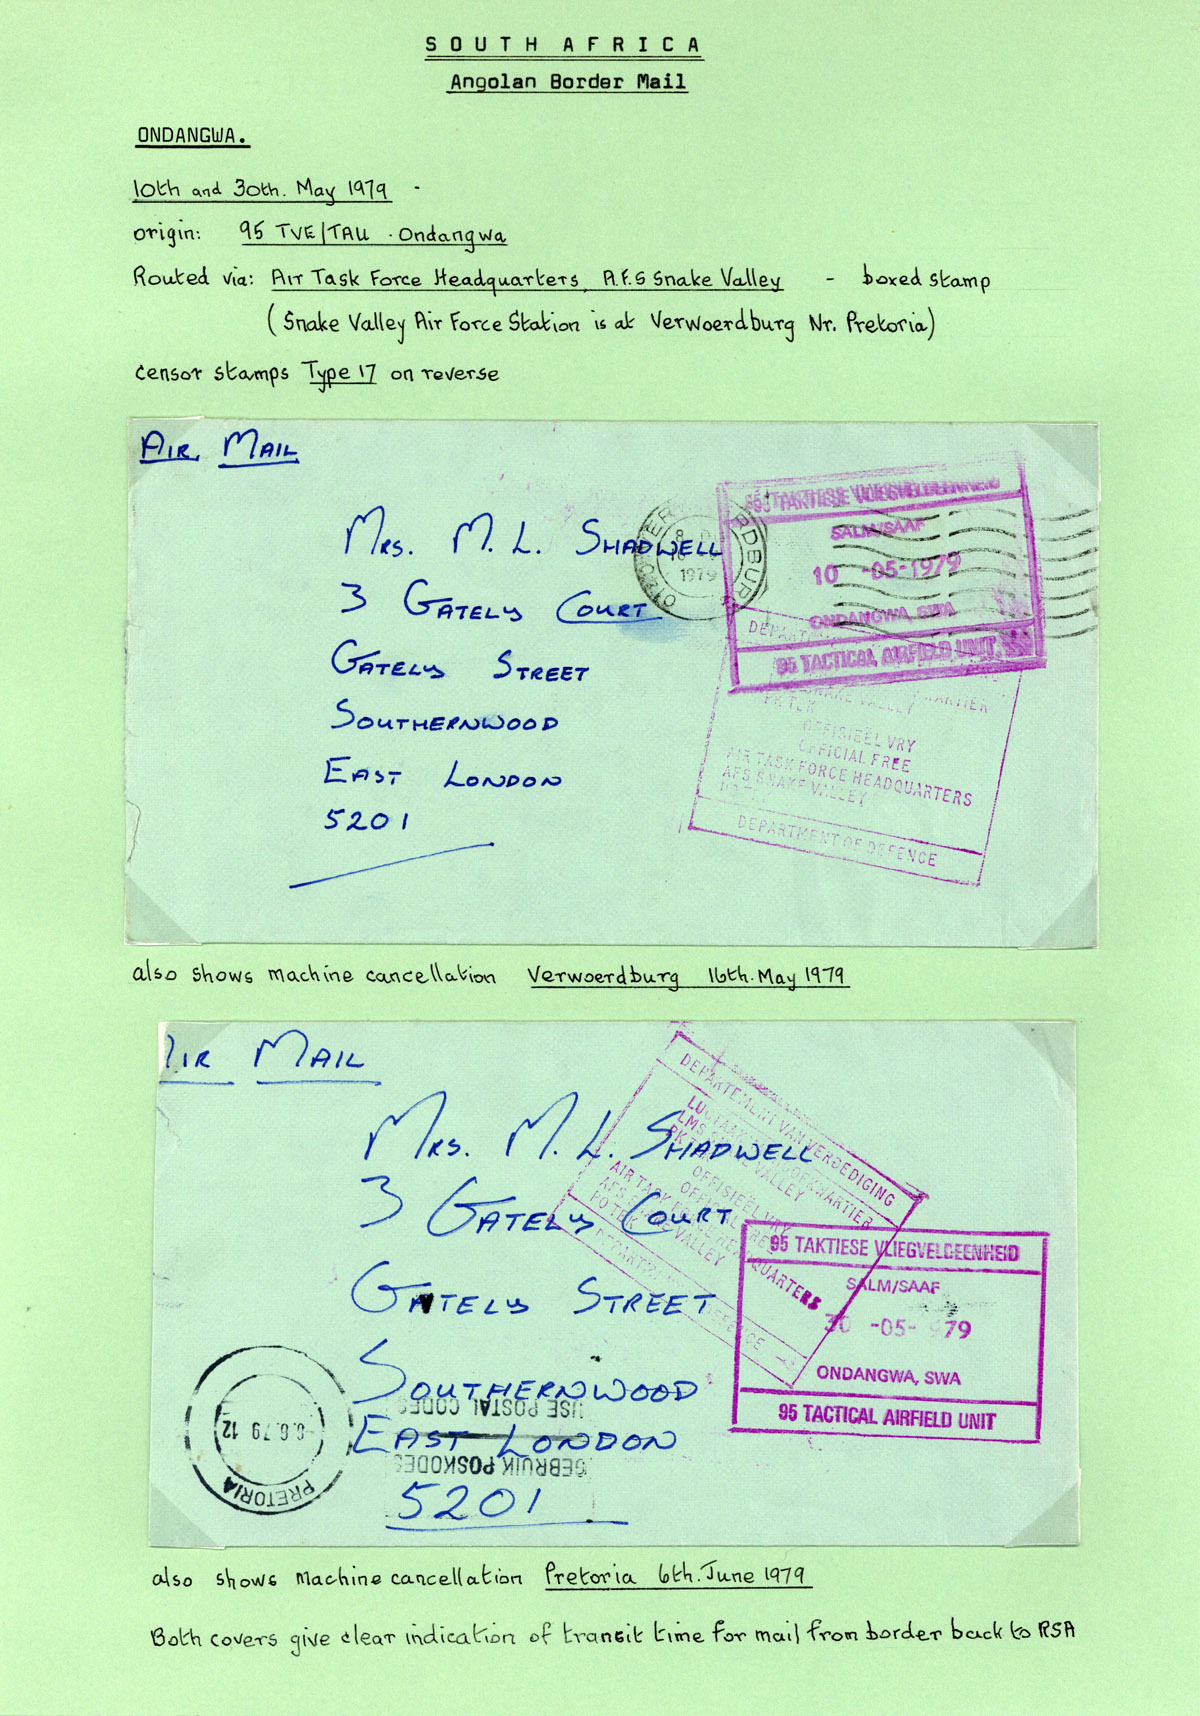 SOUTH AFRICA
Angolan Border Mail
ONDANGWA.
10th and 30th. May 1979 -
origin: 95 TVE/TAU · Ondangwa
Routed via: Air Task Force Headquarters, A.F.S Snake Valley - boxed stamp
(Snake Valley Air Force Station is at Verwoerdburg Nr. Pretoria)
censor stamps Type 17 on reverse
AIR MAIL
MRS. M. L. SHADWELL
3 GATELY COURT
GATELY STREET
SOUTHERNWOOD
EAST LONDON
5201
1979
95 TAKTIESE VLIEGVELDEENHEID
SALM/SAAF
10 -05-1979
ONDANGWA, SWA
95 TACTICAL AIRFIELD UNIT
SNAKE VALLEY
OFFISIEEL VRY
OFFICIAL FREE
AIR TASK FORCE HEADQUARTERS
AFS SNAKE VALLEY
DEPARTMENT OF DEFENCE
also shows machine cancellation Verwoerdburg 16th. May 1979
AIR MAIL
MRS. M. L. SHADWELL
3 GATELY COURT
GATELY STREET
SOUTHERNWOOD
EAST LONDON
5201
DEPARTEMENT VAN VERDEDIGING
OFFISIEEL VRY
AIR TASK FORCE HEADQUARTERS
AFS SNAKE VALLEY
PO TEK
DEFENCE
95 TAKTIESE VLIEGVELDEENHEID
SALM/SAAF
30 -05- 979
ONDANGWA, SWA
95 TACTICAL AIRFIELD UNIT
PRETORIA
-6.6.79 12
GEBRUIK POSKODES
USE POSTAL CODES
also shows machine cancellation Pretoria 6th. June 1979
Both covers give clear indication of transit time for mail from border back to RSA